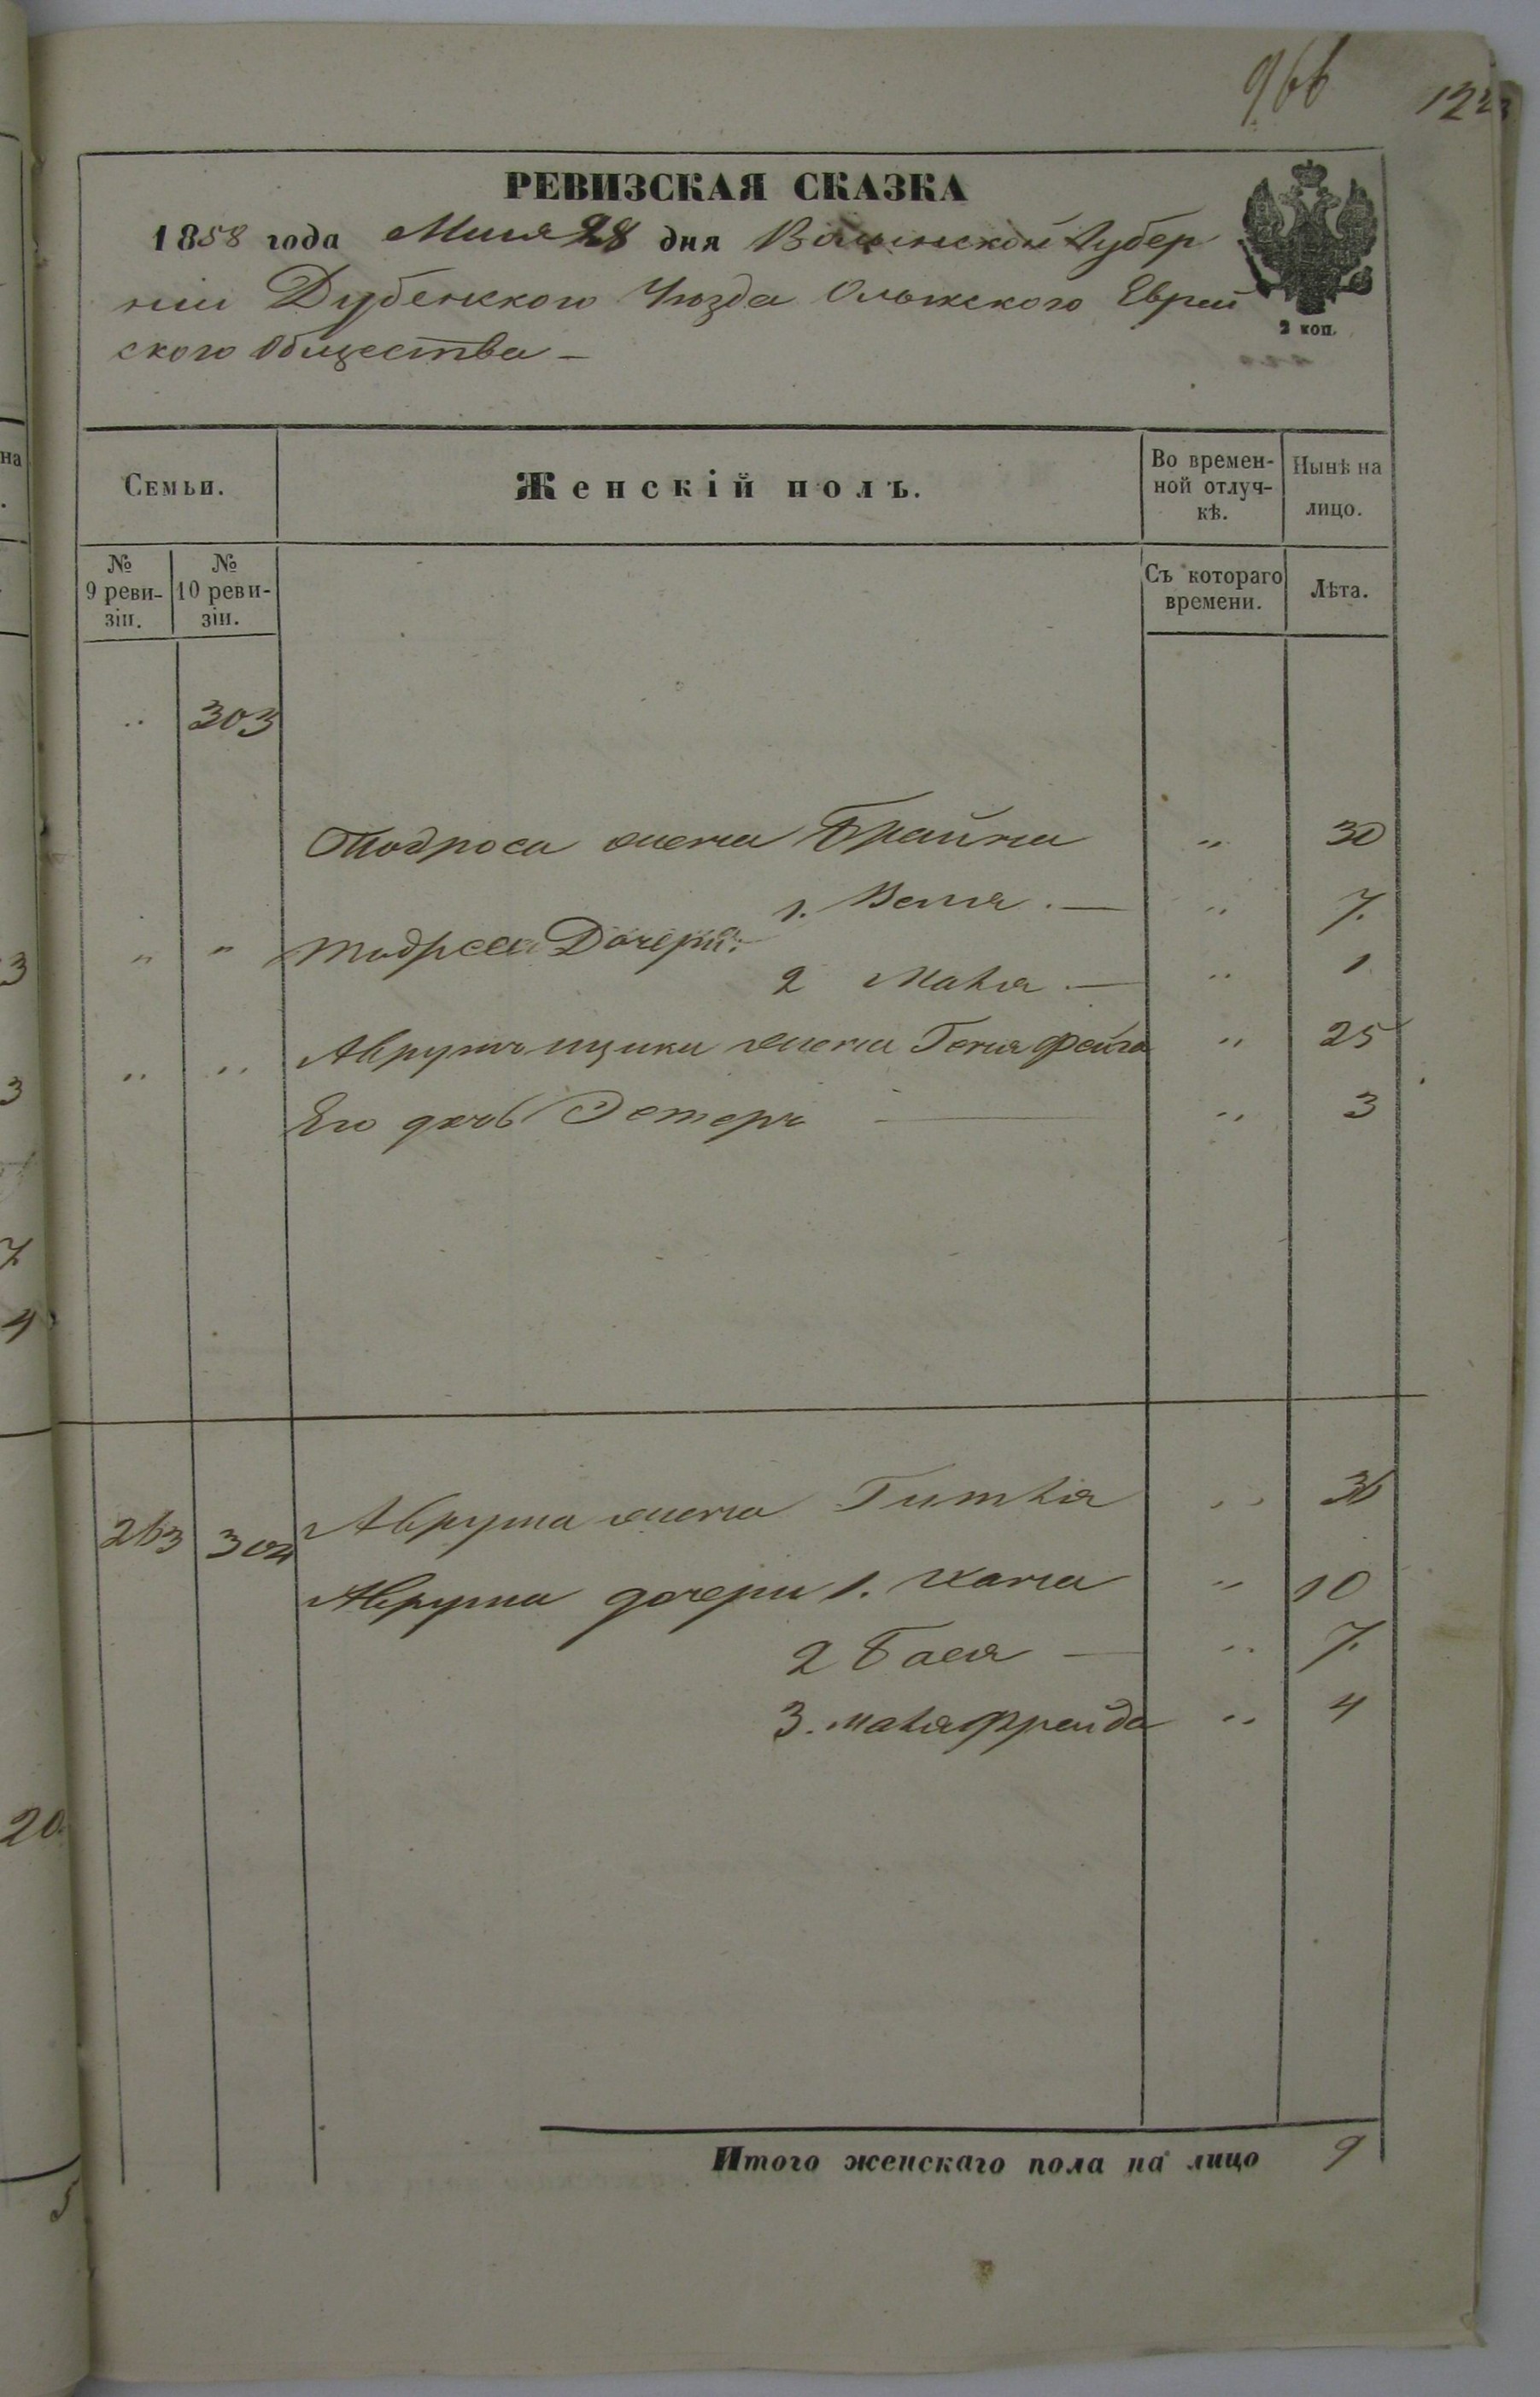 966 122
РЕВИЗСКАЯ СКАЗКА
1858 года Маія 28 дня Волынской Губер
ніи Дубенского Уѣзда Олыкского Еврей
ского Общества –
2 коп.
Семьи. Женскій полъ. Во времен-ной отлуч-кѣ. Нынѣ на лицо.
№ 9 реви-зіи. № 10 реви-зіи. Съ котораго времени. Лѣта.
„ 303
Тодроса жена Брайна „ 30
1. Веля . — „ 7.
„ „ Тодроса Дочери:
2 Маля . — „ 1
„ „ Аврумъ Ицика жена Геня Фейга „ 25
Его дочь Эстеръ — „ 3
263 304 Аврума жена Гитля „ 36
Аврума дочери 1. Хана „ 10
2 Бася — „ 7.
3. Маля Фрейда „ 4
Итого женскаго пола на лицо 9